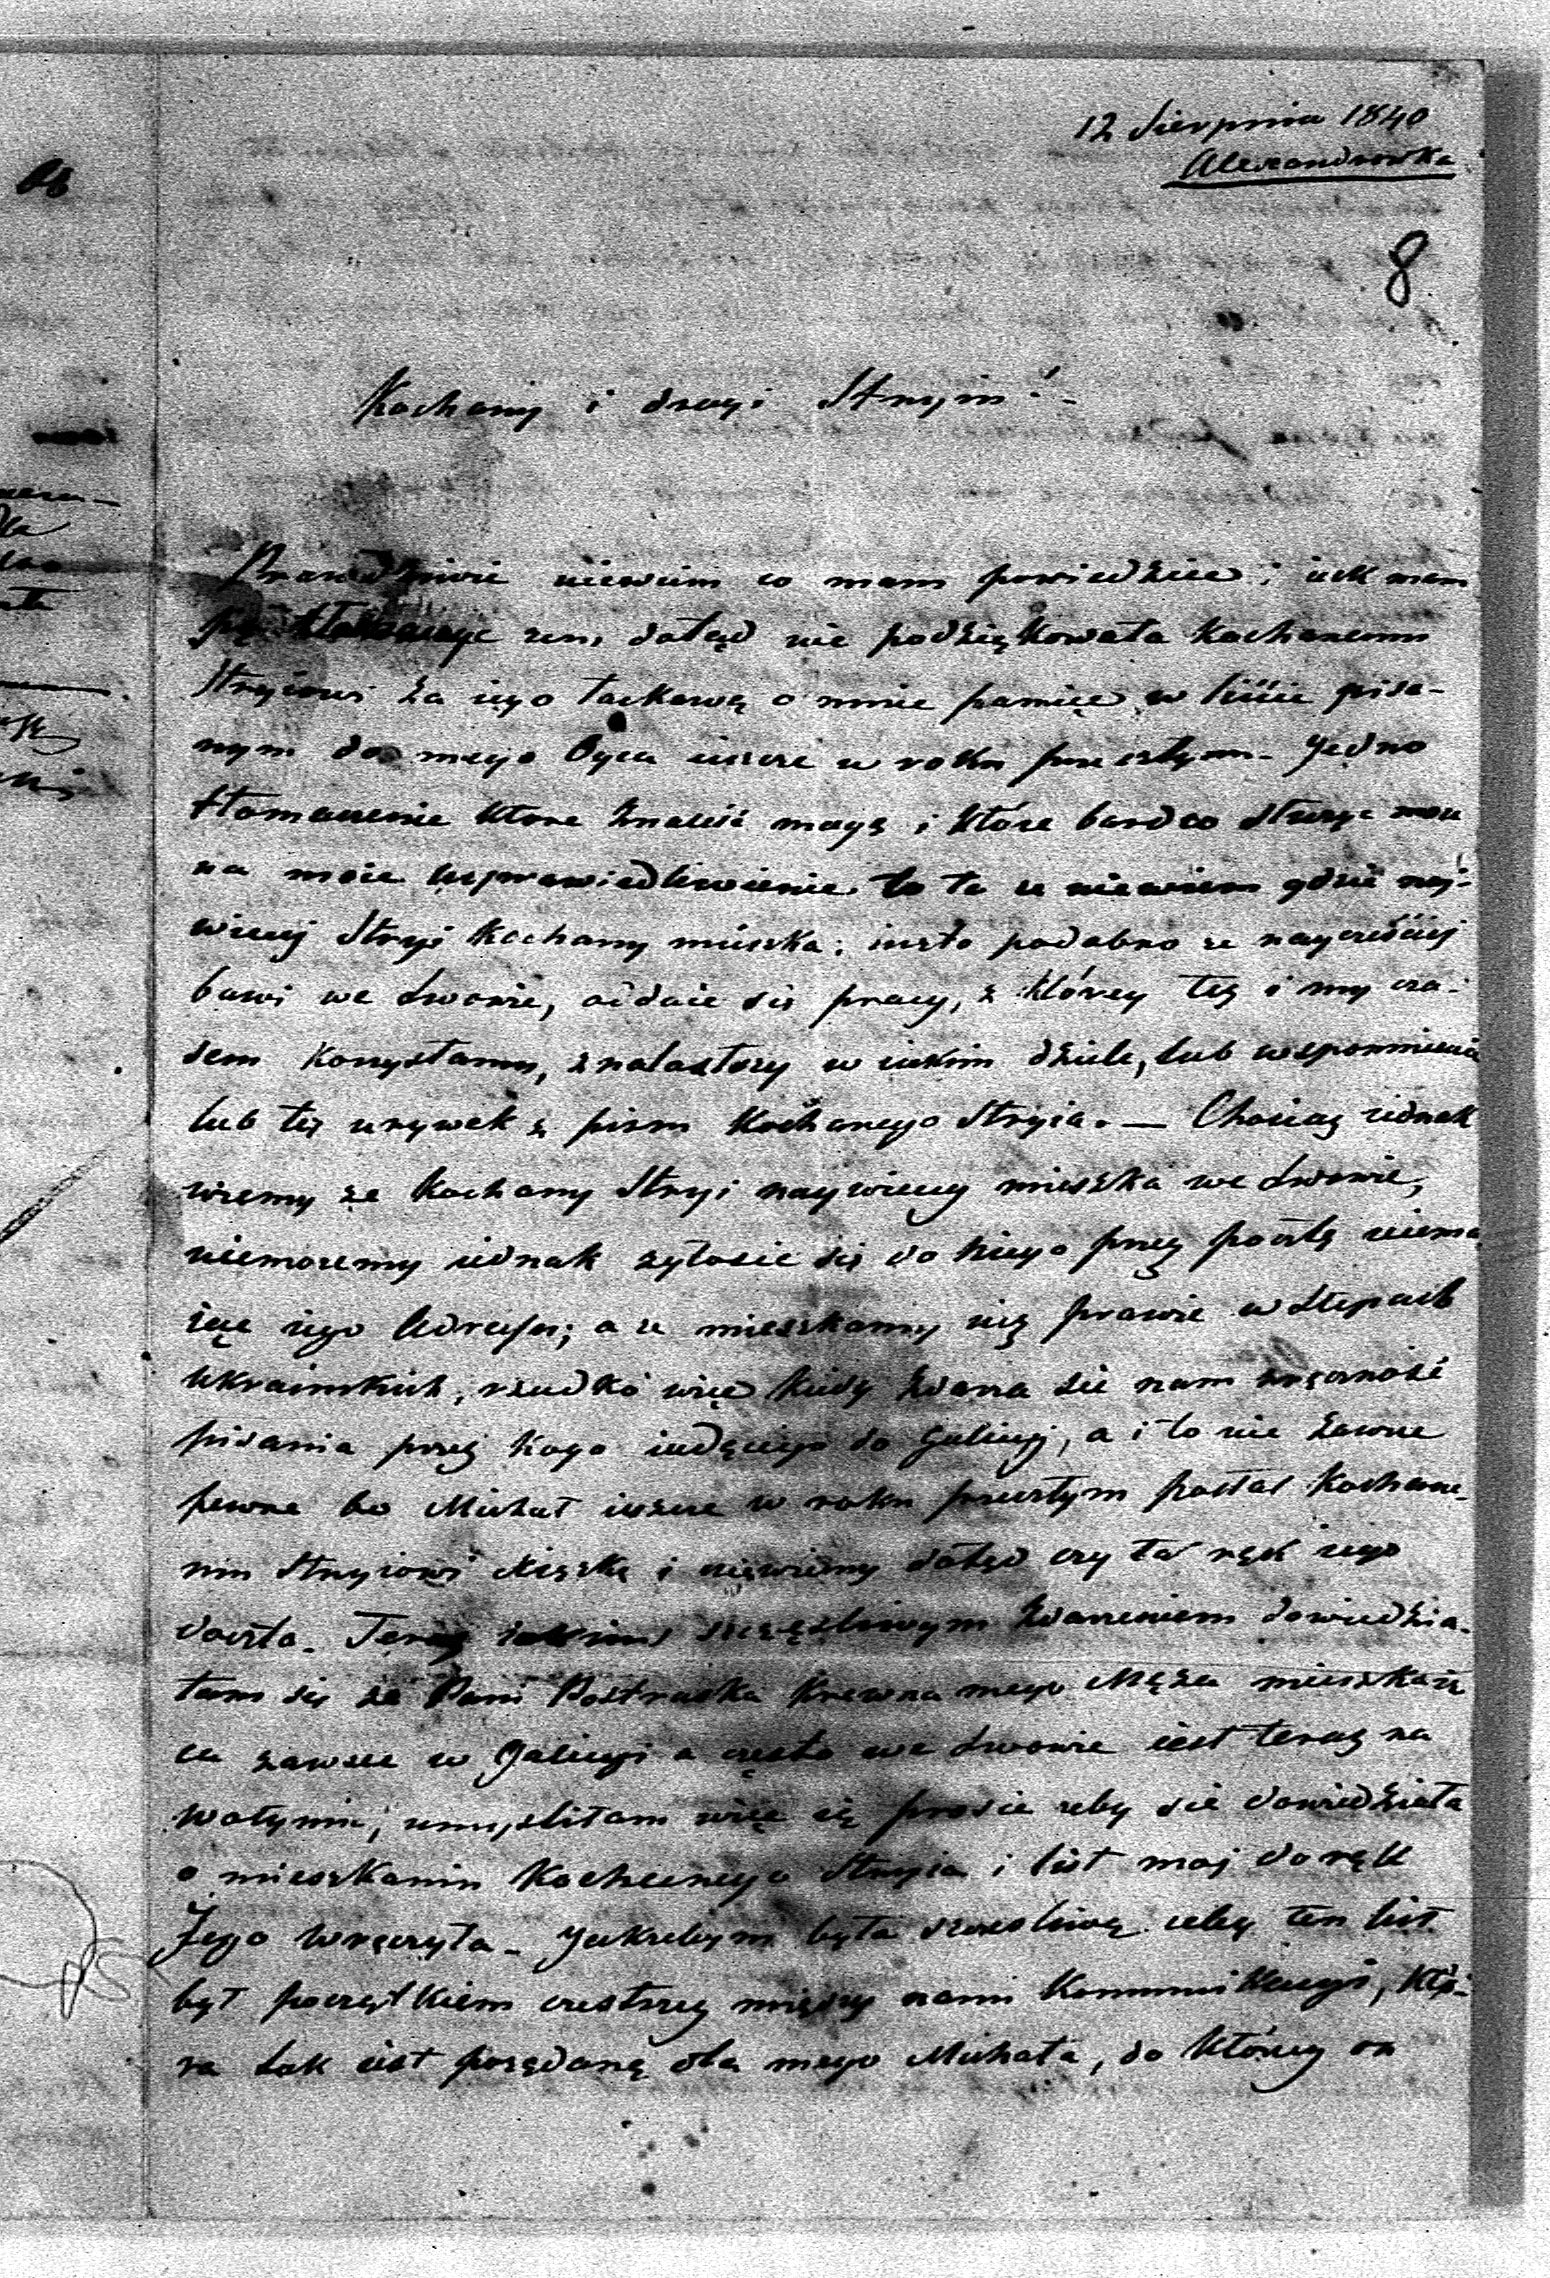 12 Sierpnia 1840
Alexandrowka
8
Kochany i drogi Stryiu!-
Prawdziwie niewiem co mam powiedziec i iak mam
się tłomaczyc zem dotąd nie podziękowała Kochanemu
Stryiowi za iego łaskawą o mnie pamięc w liście pisa-
nym do mego Oyca ieszcze w roku przeszłym- Jedno
tłomaczenie które znaleść mogę i które bardzo służyc może
na moie usprawiedliwienie to to ze niewiem gdzie naj-
więcej Stryi kochany mieszka; podobno ze nayczęściej
bawi we Lwowie, oddaie się pracy, z którey też i my cza-
sem korzystamy, znalazłszy w iakim dziele, lub wspomnienia
lub też urywek z pism Kochanego Stryia.- Chociaż iednak
wiemy ze Kochany Stryi naywięcey mieszka we Lwowie,
niemozemy iednak zgłosic się do niego przez pocztę niema
iąc iego Adressu; a ze mieszkamy iuż prawie w Stepach
Ukrainskich, rzadko więc kiedy zdarza sie nam zręczność
pisania przez kogo iadącego do Galicyi, a i to nie zawsze
pewne bo Michał ieszcze w roku przeszłym posłał Kochane-
mu Stryiowi Xiążkę i niewiemy dotąd czy ta rąk iego
doszła. Teraz iakims szczęśliwym zdarzeniem dowiedzia-
łam się ze Pani Postruska Krewna mego Męża mieszkaią
ca zawsze w Galicyi a często we Lwowie iest teraz na
Wołyniu, umysliłam więc ią prosic zeby sie dowiedziała
o mieszkaniu Kochanego Stryia i list moj do rąk
Jego wręczyła- Jakzebym była szczesliwą zeby ten list
był początkiem czestszey między nami Kommunikacyi, któ-
ra tak iest porządaną dla mego Michała, do którey on